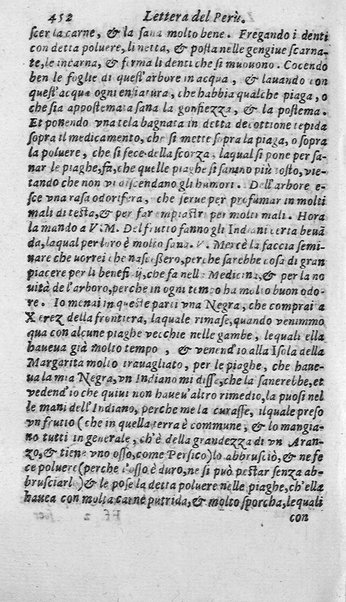 452 Lettera del Perù.
scer la carne, & la sana molto bene. Fregando i denti
con detta poluere, li netta, & posta nelle gengiue scarna-
te, le incarna, & ferma li denti che si muouono. Cocendo
ben le foglie di quest'arbore in acqua, & lauando con
quest'acqua ogni enfiatura, che habbia qualche piaga, o
che sia apostemata sana la gonfiezza, & la postema.
Et ponendo vna tela bagnata in detta decottione tepida
sopra il medicamento, che si mette sopra la piaga, o sopra
la poluere, che si fece della scorza, laqual si pone per sa-
nar le piaghe, fa, che quelle piaghe si sanino più tosto, vie-
tando che non vi discendano gli humori. Dell'arbore e-
sce vna rasa odorifera, che serue per profumar in molti
mali di testa, & per far empiastri per molti mali. Hora
la mando a V.M. Del frutto fanno gli Indiani certa beuã
da, laqual per loro è molto sana. V. Mercè la faccia semi-
nare che vorrei che nascessero, perche sarebbe cosa di gran
piacere per li benefitij, che fà nell' Medicina, & per la no
uità de l'arboro, perche in ogni tempo ha molto buon odo-
re. Io menai in queste parti vna Negra, che comprai a
Xerez della frontiera, laquale rimase, quando venimmo
qua con alcune piaghe vecchie nelle gambe, lequali ella
haueua già molto tempo, & venend'io alla Isola della
Margarita molto trauagliato, per le piaghe, che haue-
ua la mia Negra, vn Indiano mi disse, che la sanerebbe, et
vedend'io che quiui non haueu'altro rimedio, la puosi nel
le mani dell'Indiano, perche me la curasse, ilquale preso
vn frutto (che in quella terra è commune, & lo mangia-
no tutti in generale, ch'è della grandezza di vn Aran-
zo, & tiene vno osso, come Persico) lo abbrusciò, & ne fe-
ce poluere (perche l'osso è duro, ne si può pestar senza ab-
brusciarlo) & le pose la detta poluere nelle piaghe, ch'ella
hauea con molta carne putrida, & molto sporcha, lequali
con